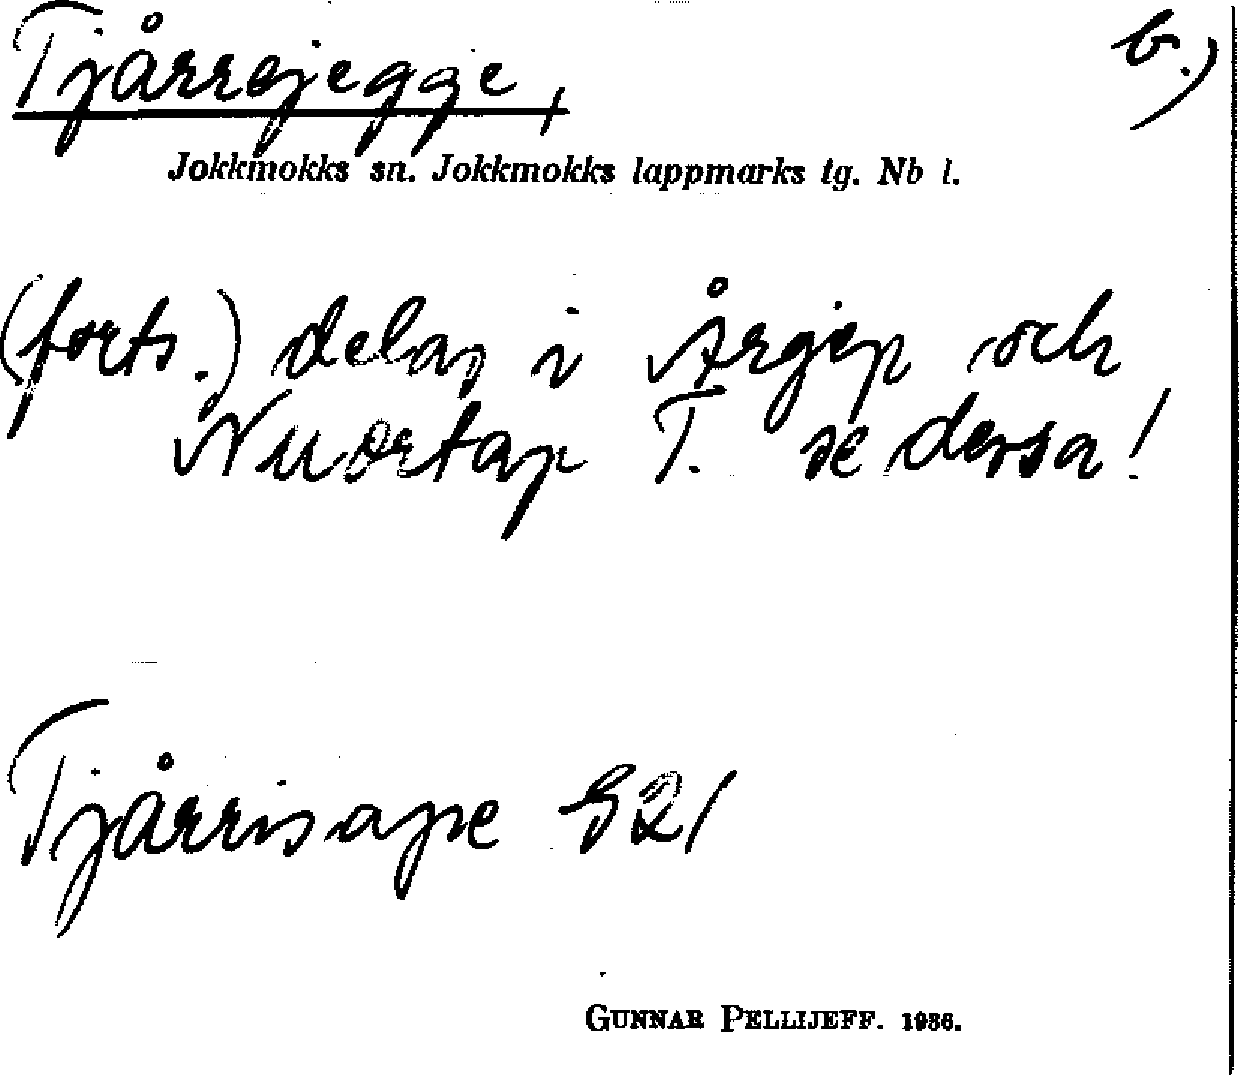 Tjårrejegge, b.)
Jokkmokks sn. Jokkmokks lappmarks tg. Nb l.
(forts.) delas i Årjep och
Nuortap T. se dessa!
Tjårrisape 821
GUNNAR PELLIJEFF. 1936.